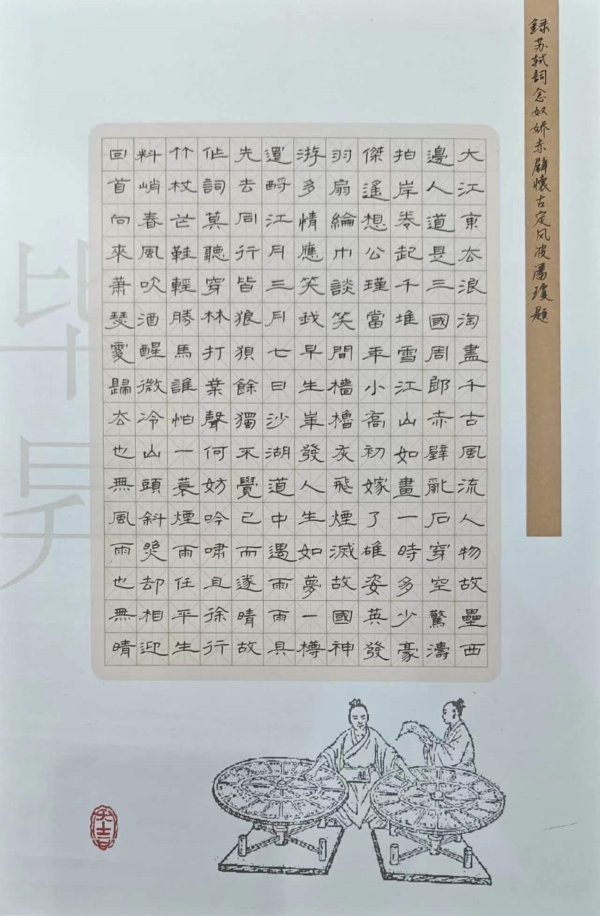 録苏轼詞念奴娇赤壁懷古定风波潘瓊題
大江東去浪淘盡千古風流人物故壘西
邊人道是三國周郎赤壁亂石穿空驚濤
拍岸卷起千堆雪江山如畫一時多少豪
傑遙想公瑾當年小喬初嫁了雄姿英發
羽扇綸巾談笑間檣櫓灰飛煙滅故國神
游多情應笑我早生華發人生如夢一樽
還酹江月三月七日沙湖道中遇雨雨具
先去同行皆狼狽餘獨不覺已而遂晴故
作詞莫聽穿林打葉聲何妨吟嘯且徐行
竹杖芒鞋輕勝馬誰怕一蓑煙雨任平生
料峭春風吹酒醒微冷山頭斜照却相迎
回首向來蕭瑟處歸去也無風雨也無晴
毕昇